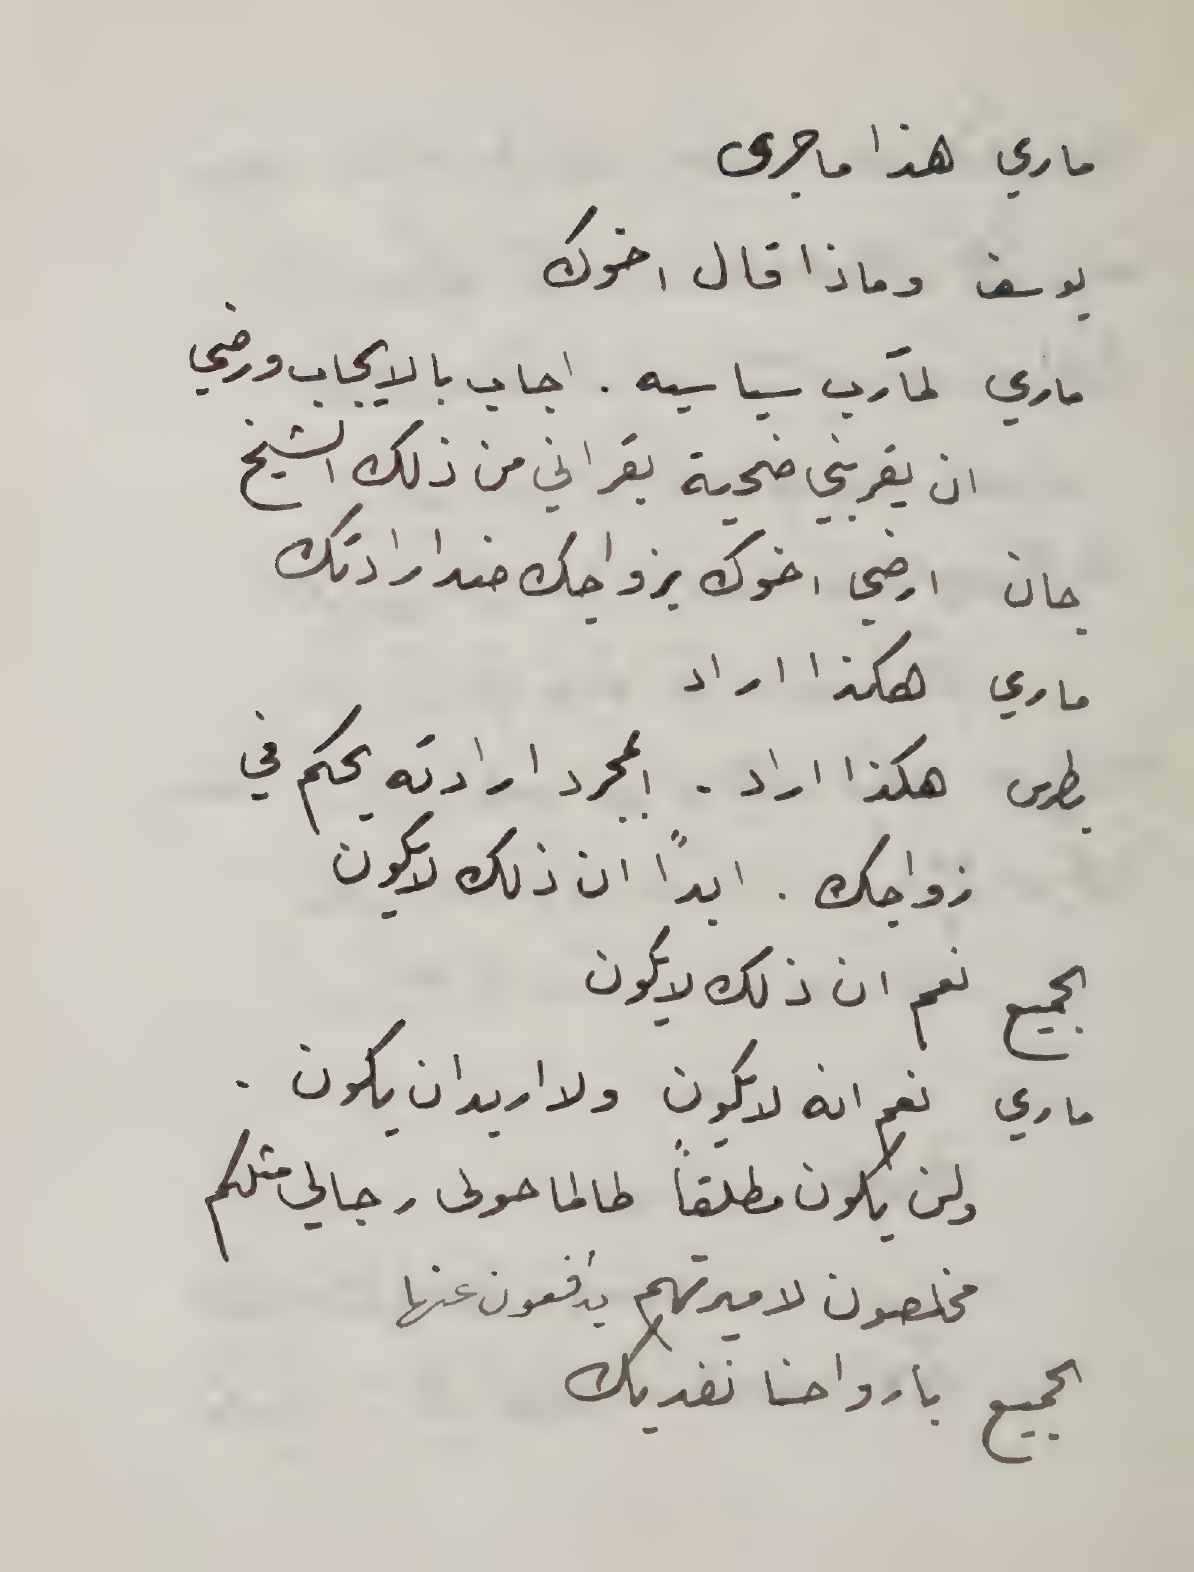 ماري هذا ما جرى
يوسف وماذا قال اخوك
ماري لمآرب سياسيه . اجاب بالايجاب ورضي
ان يقربني ضحية بقراني من ذلك الشيخ
جان ارضي اخوك بزواجك ضد ارادتك
ماري هكذا اراد
بطرس هكذا اراد . المجرد ارادته يحكم في
زواجك . ابداً ان ذلك لا يكون
الجميع نعم ان ذلك لا يكون
ماري نعم انه لا يكون ولا اريد ان يكون .
ولن يكون مطلقاً طالما حولى رجالي مثلكم
مخلصون لاميرتهم يدأفعون عنها
الجميع بارواحنا نفديك